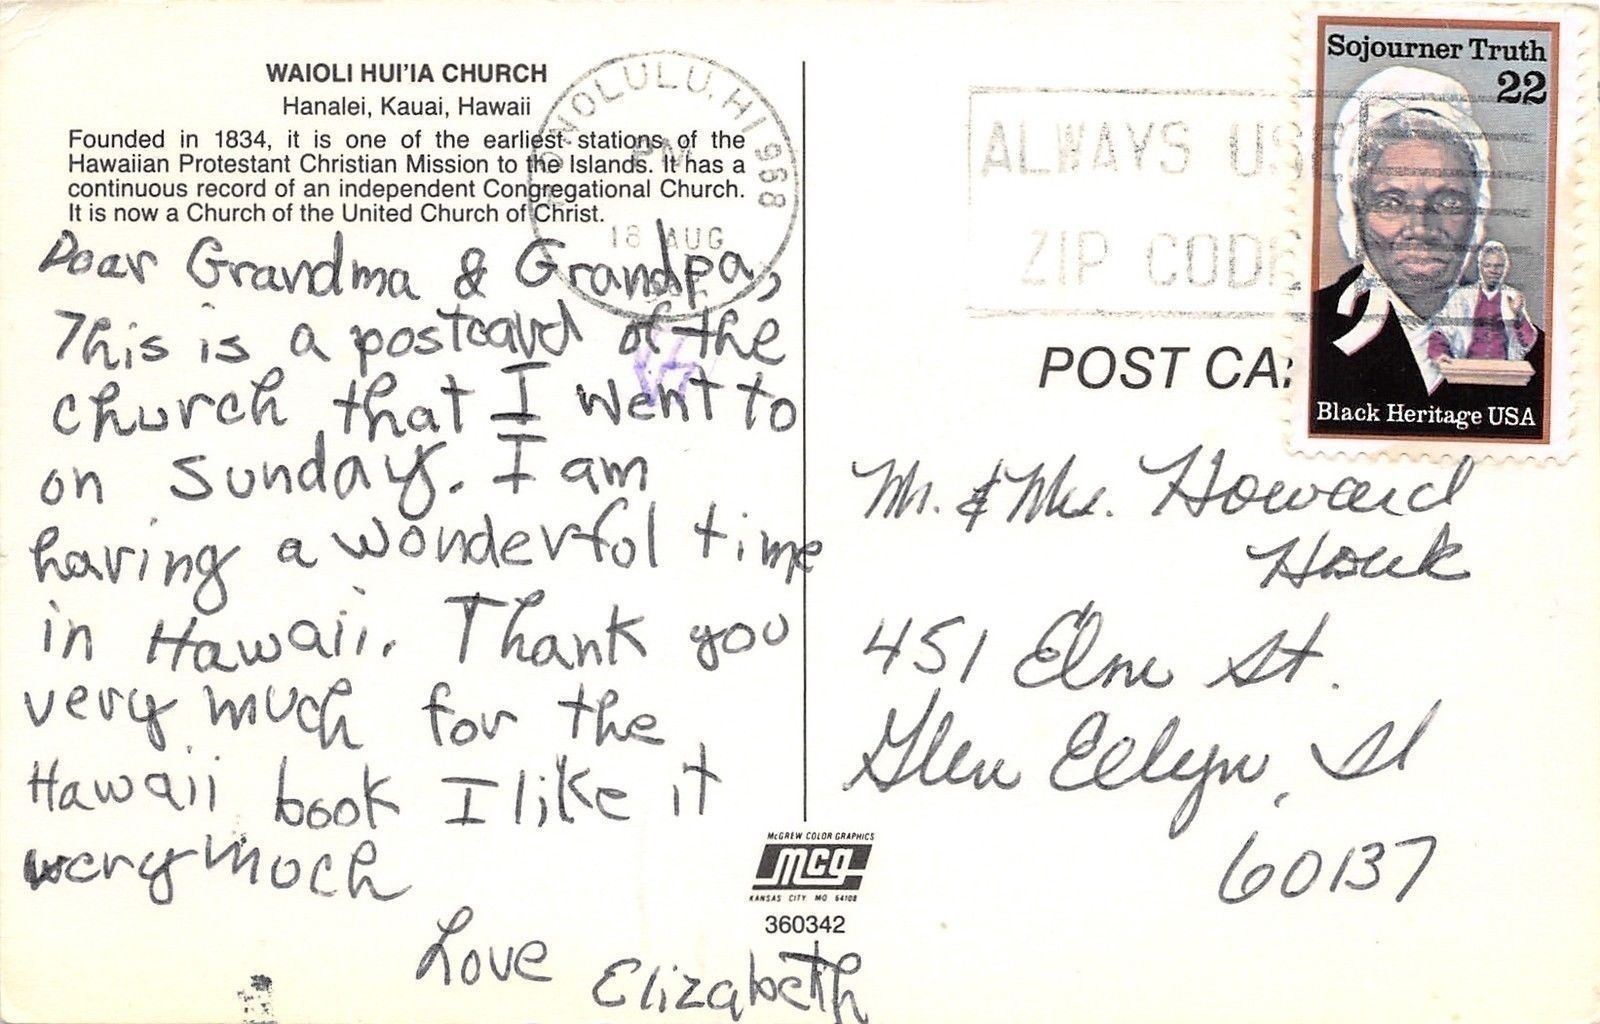 WAIOLI HUI'IA CHURCH
Hanalei, Kauai, Hawaii
Founded in 1834, it is one of the earliest stations of the
Hawaiian Protestant Christian Mission to the Islands. It has a
continuous record of an independent Congregational Church.
It is now a Church of the United Church of Christ.
HONOLULU, HI 968
PM
18 AUG
Dear Grandma & Grandpa,
This is a postcard of the
church that I went to
on Sunday. I am
having a wonderful time
in Hawaii. Thank you
very much for the
Hawaii book I like it
very much
Love
Elizabeth
McGREW COLOR GRAPHICS
mcg
KANSAS CITY MO 64108
360342
ALWAYS USE
ZIP CODE
Sojourner Truth
22
Black Heritage USA
POST CA
Mr. & Mrs. Howard
Houk
451 Elm St.
Glen Ellyn, Il
60137